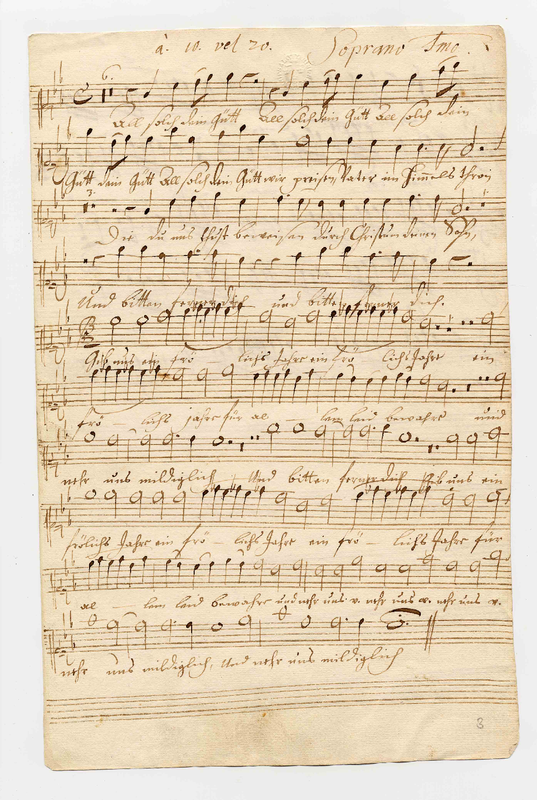 à. 10. vel 20. Soprano Imo.
6.
All solch dein Gütt All solch dein Gütt All solch dein
Gütt dein Gütt All solch dein Gütt wir preisen Vater im Himels thron
3.
Die du uns thust beweisen durch Christum deinen Sohn,
Und bitten ferner dich und bitten ferner dich.
Gib uns ein frö lichs Jahre ein frö lichs Jahre ein
frö – lichs Jahre für al – lem laid bewahre und
nehr uns mildiglich Und bitten ferner dich Gib uns ein
frölichs Jahre ein frö – lichs Jahre ein frö – lichs Jahre für
al – lem laid bewahre und nehr uns v. nehr uns v. nehr uns v.
nehr uns mildiglich, Und nehr uns mildiglich
3